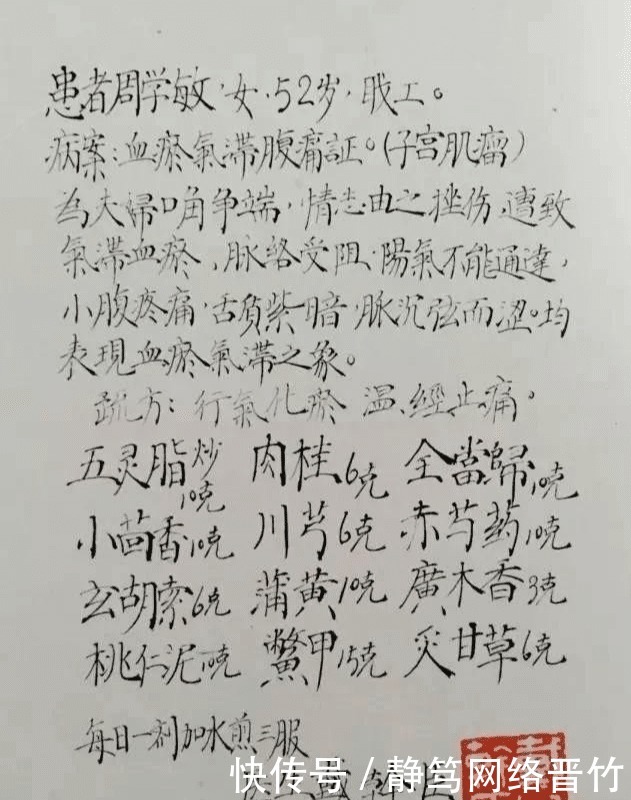 患者周学敏，女，52岁，职工。
病案：血瘀氣滞腹痛証。（子宫肌瘤）
為夫婦口角争端，情志由之挫伤，遭致
氣滞血瘀，脉络受阻，陽氣不能通達，
小腹疼痛，舌質紫暗，脉沉弦而涩。均
表現血瘀氣滞之象。
疏方：行氣化瘀 温經止痛。
五灵脂炒10克 肉桂6克 全當歸10克
小茴香10克 川芎6克 赤芍药10克
玄胡索6克 蒲黄10克 廣木香3克
桃仁泥10克 鱉甲15克 炙甘草6克
每日一剂加水煎三服
快传号／静笃网络晋竹